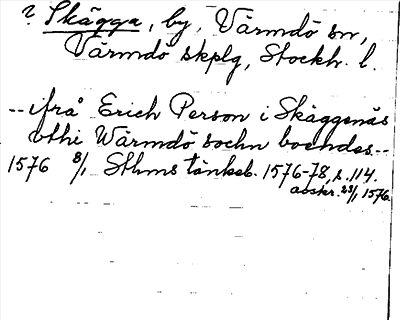 ? Skägga, by, Värmdö sn,
Värmdö skplg, Stockh. l.
-- ifrå Erich Person i Skäggenäs
vthi Wärmdö sochn boendes --
1576 8/1 Sthms tänkeb. 1576-78, s. 114.
avskr. 23/1 1576.